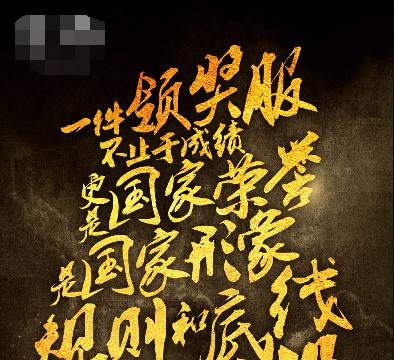 一件领奖服
不止于成绩
更是国家荣誉
是国家形象
规则和底线